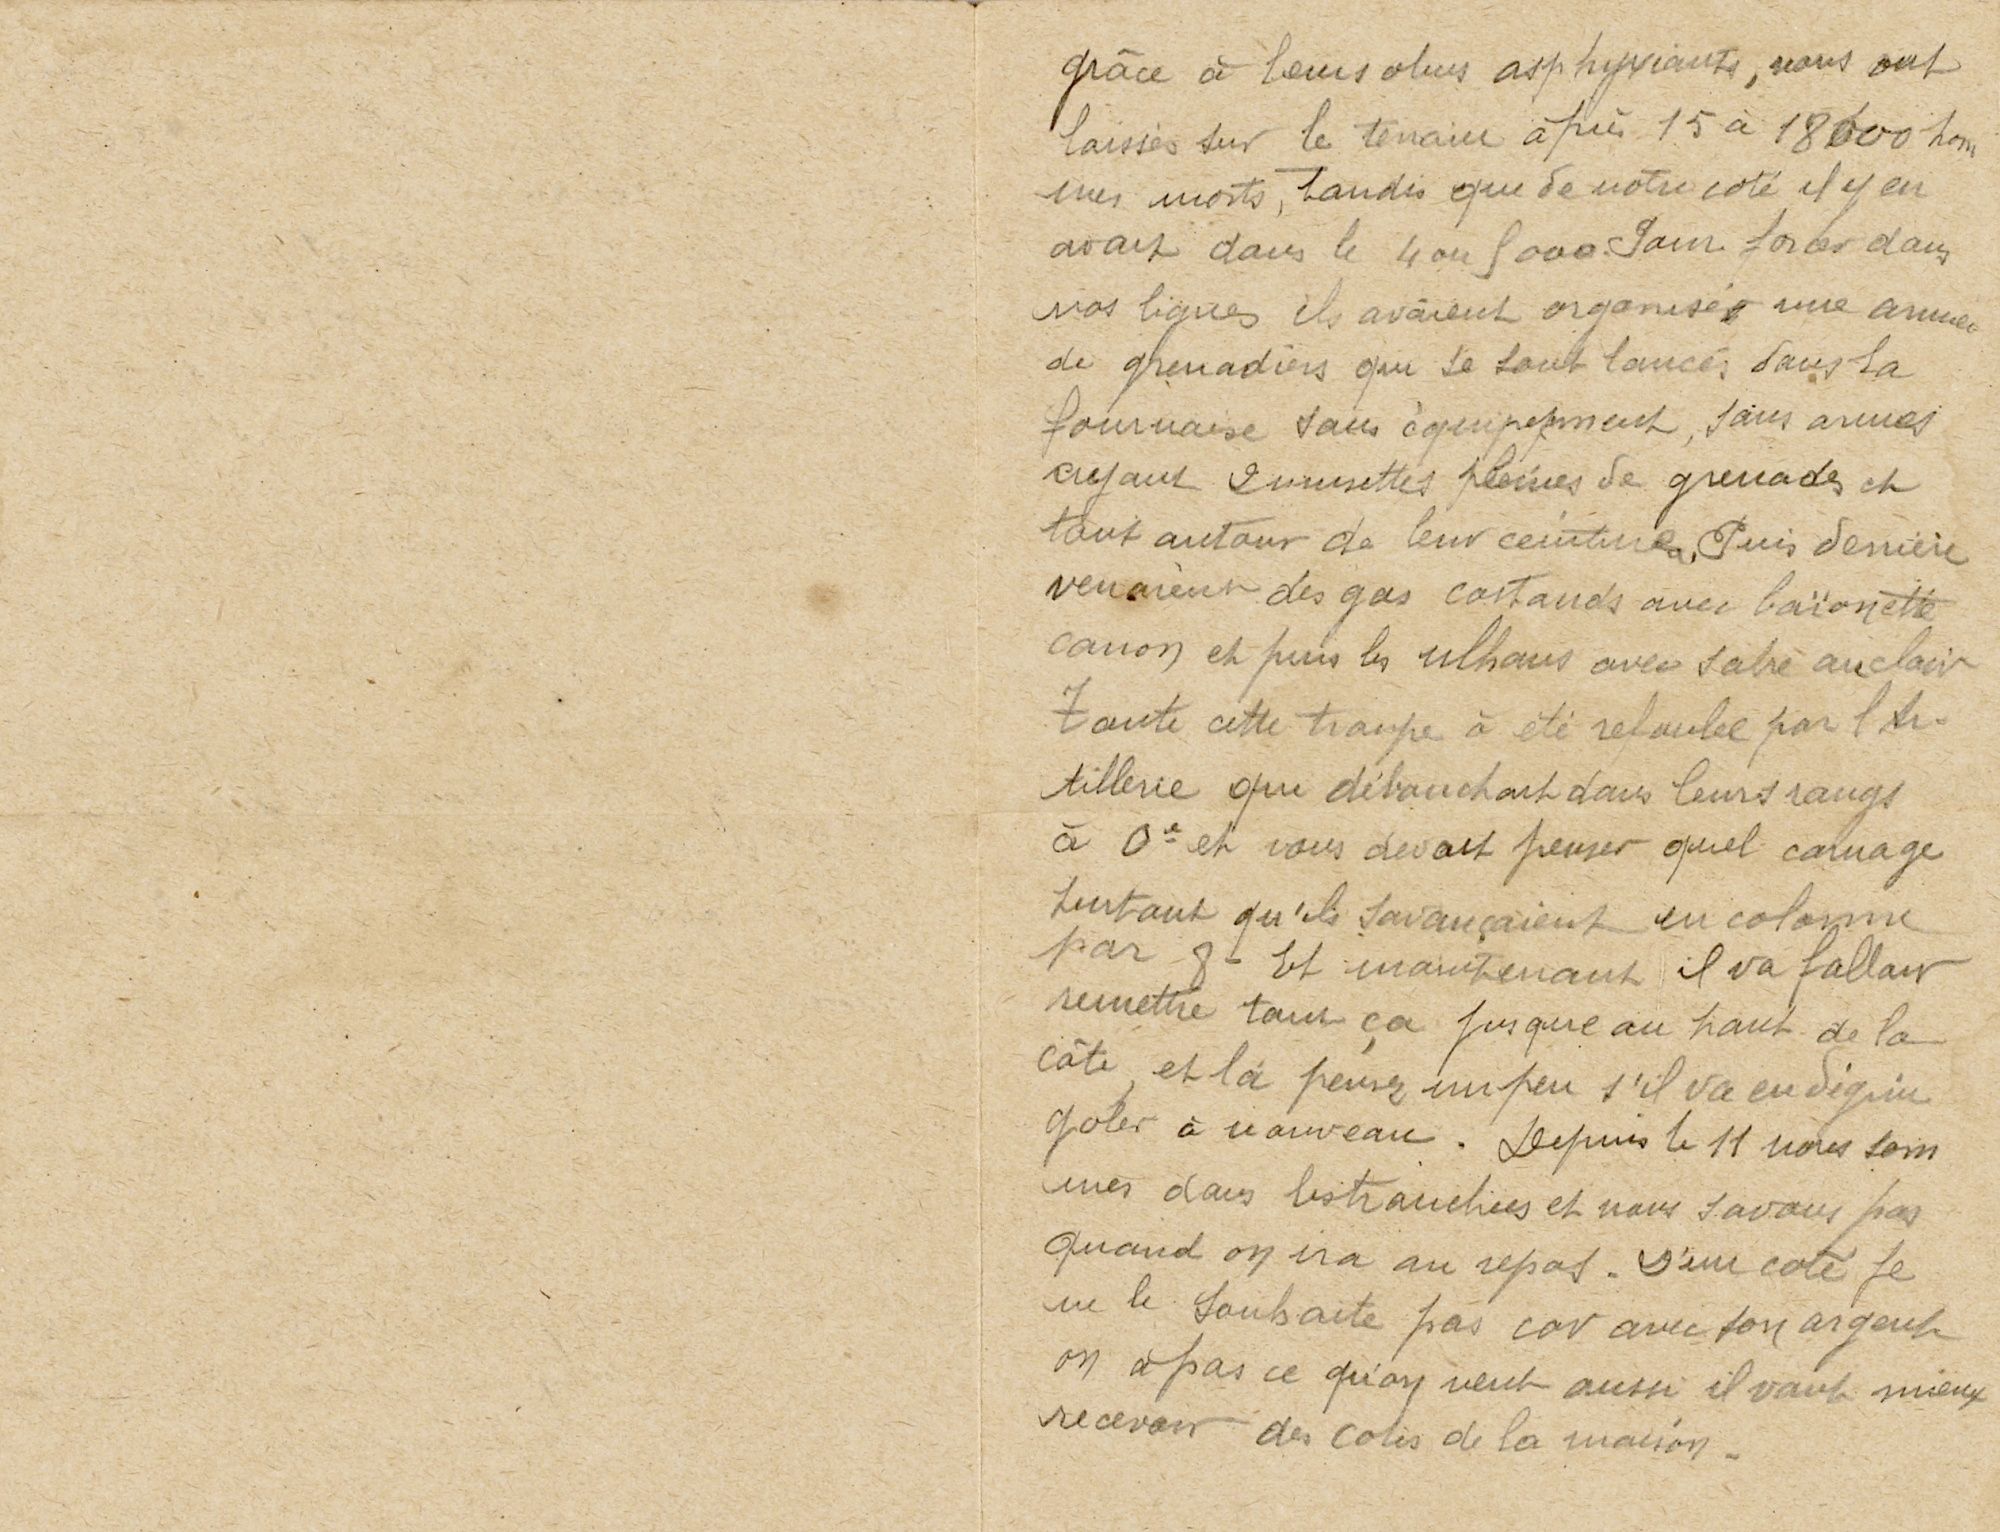 grâce à leurs obus asphyxiants, nous ont
laissés sur le terrain à près 15 à 18000 hom
mes morts, tandis que de notre coté il y en
avait dans le 4 ou 5000. Pour forcer dans
nos lignes ils avaient organisés une armée
de grenadiers qui se sont lancés dans la
fournaise sans équipement, sans armes
ayant 2 musettes pleines de grenades et
tout autour de leur ceinture. Puis derrière
venaient des gas costauds avec baïonette
canon et puis les ulhans avec sabre au clair
Toute cette troupe à été refoulée par l'Ar-
tillerie qui débouchait dans leurs rangs
à 0e et vous devait penser quel carnage
surtout qu'ils savançaient en colonne
par 8 - Et maintenant il va falloir
remettre tout ça jusque au haut de la
côte, et là pensez un peu s'il va en dégrin
goler à nouveau. Depuis le 11 nous som
mes dans les tranchées et nous savons pas
quand on ira au repos. D'un coté je
ne le souhaite pas car avec son argent
on à pas ce qu'on veut aussi il vaut mieux
recevoir des colis de la maison.